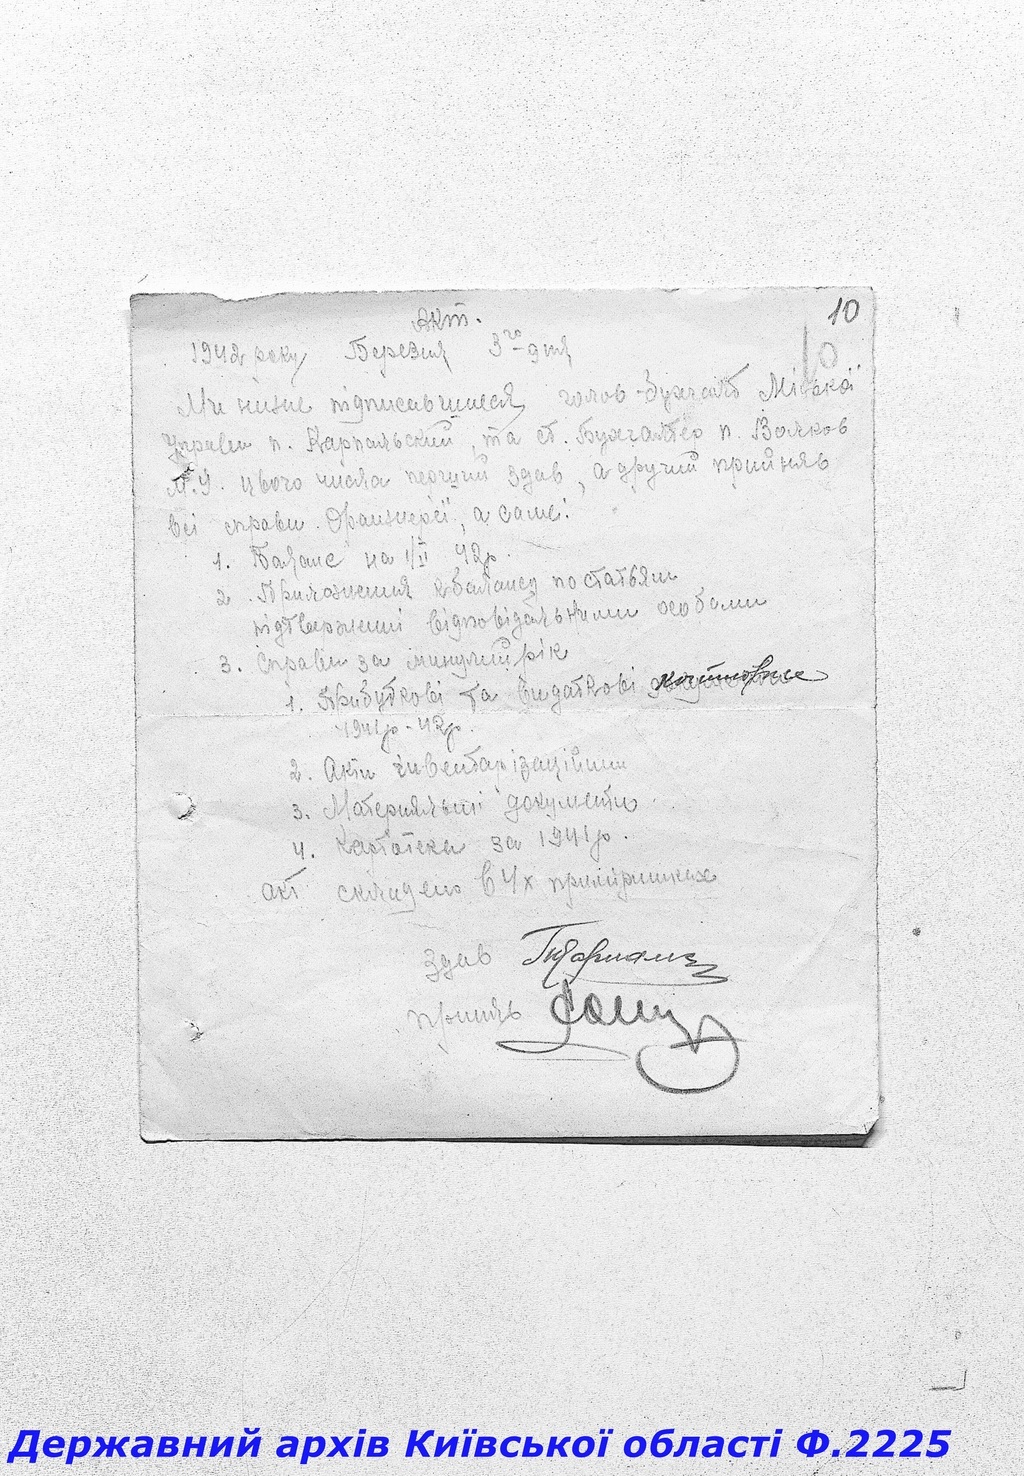 10
Акт.
10
1942 року Березня 3го дня
Ми нижче підписавшиеся, голов-Бухгалт Міської
Управи п. Карпальский, та ст. Бухгалтер п. Волков
цього числа перший здав, а другий прийняв
всі справи Оранжереї, а саме:
1. Баланс на 1/II 42р.
2. Приложения к балансу по статьям
підтвержені відповідальними особами
3. Справи за минулий рік
1. Прибуткові та видаткові
1941р-42р.
2. Акти інвентарізаційни
3. Материяльні документи
4. Картотека за 1941р.
Акт складено в 4х примірниках
Здав
Приняв
Державний архів Київської області Ф.2225